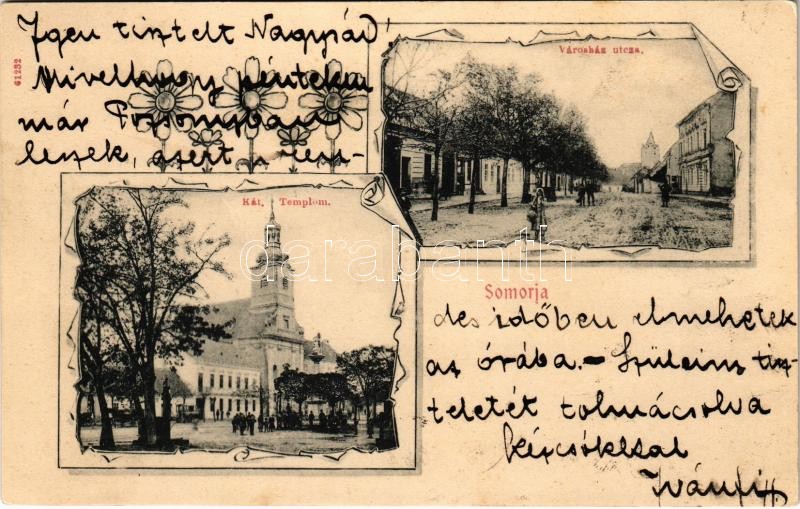 61232
Igen tisztelt Nagysád!
Mivelhogy pénteken
már Pozsonyban
leszek, azért a ren-
Városház utcza.
Kát. Templom.
darabanth
Somorja
des időben elmehetek
az órába. – Szüleim tisz-
teletét tolmácsolva
kézcsókkal
Iványi